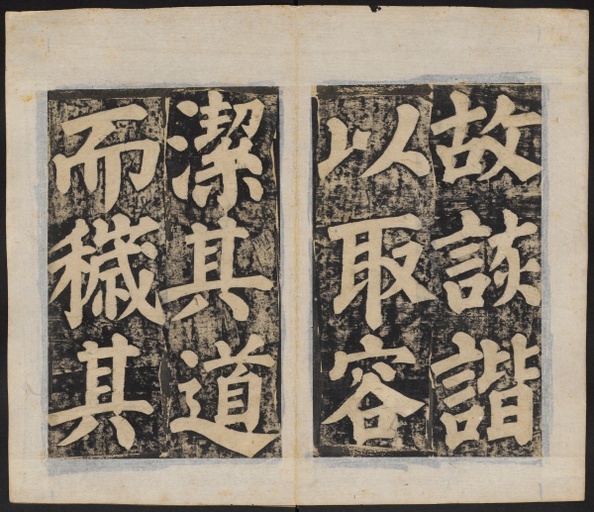 故詼諧
以取容
潔其道
而穢其